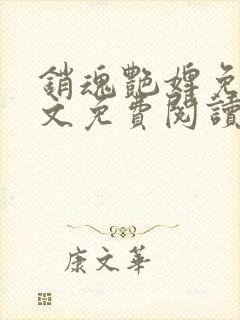 銷魂艷婢免
文免費閱讀
康文華